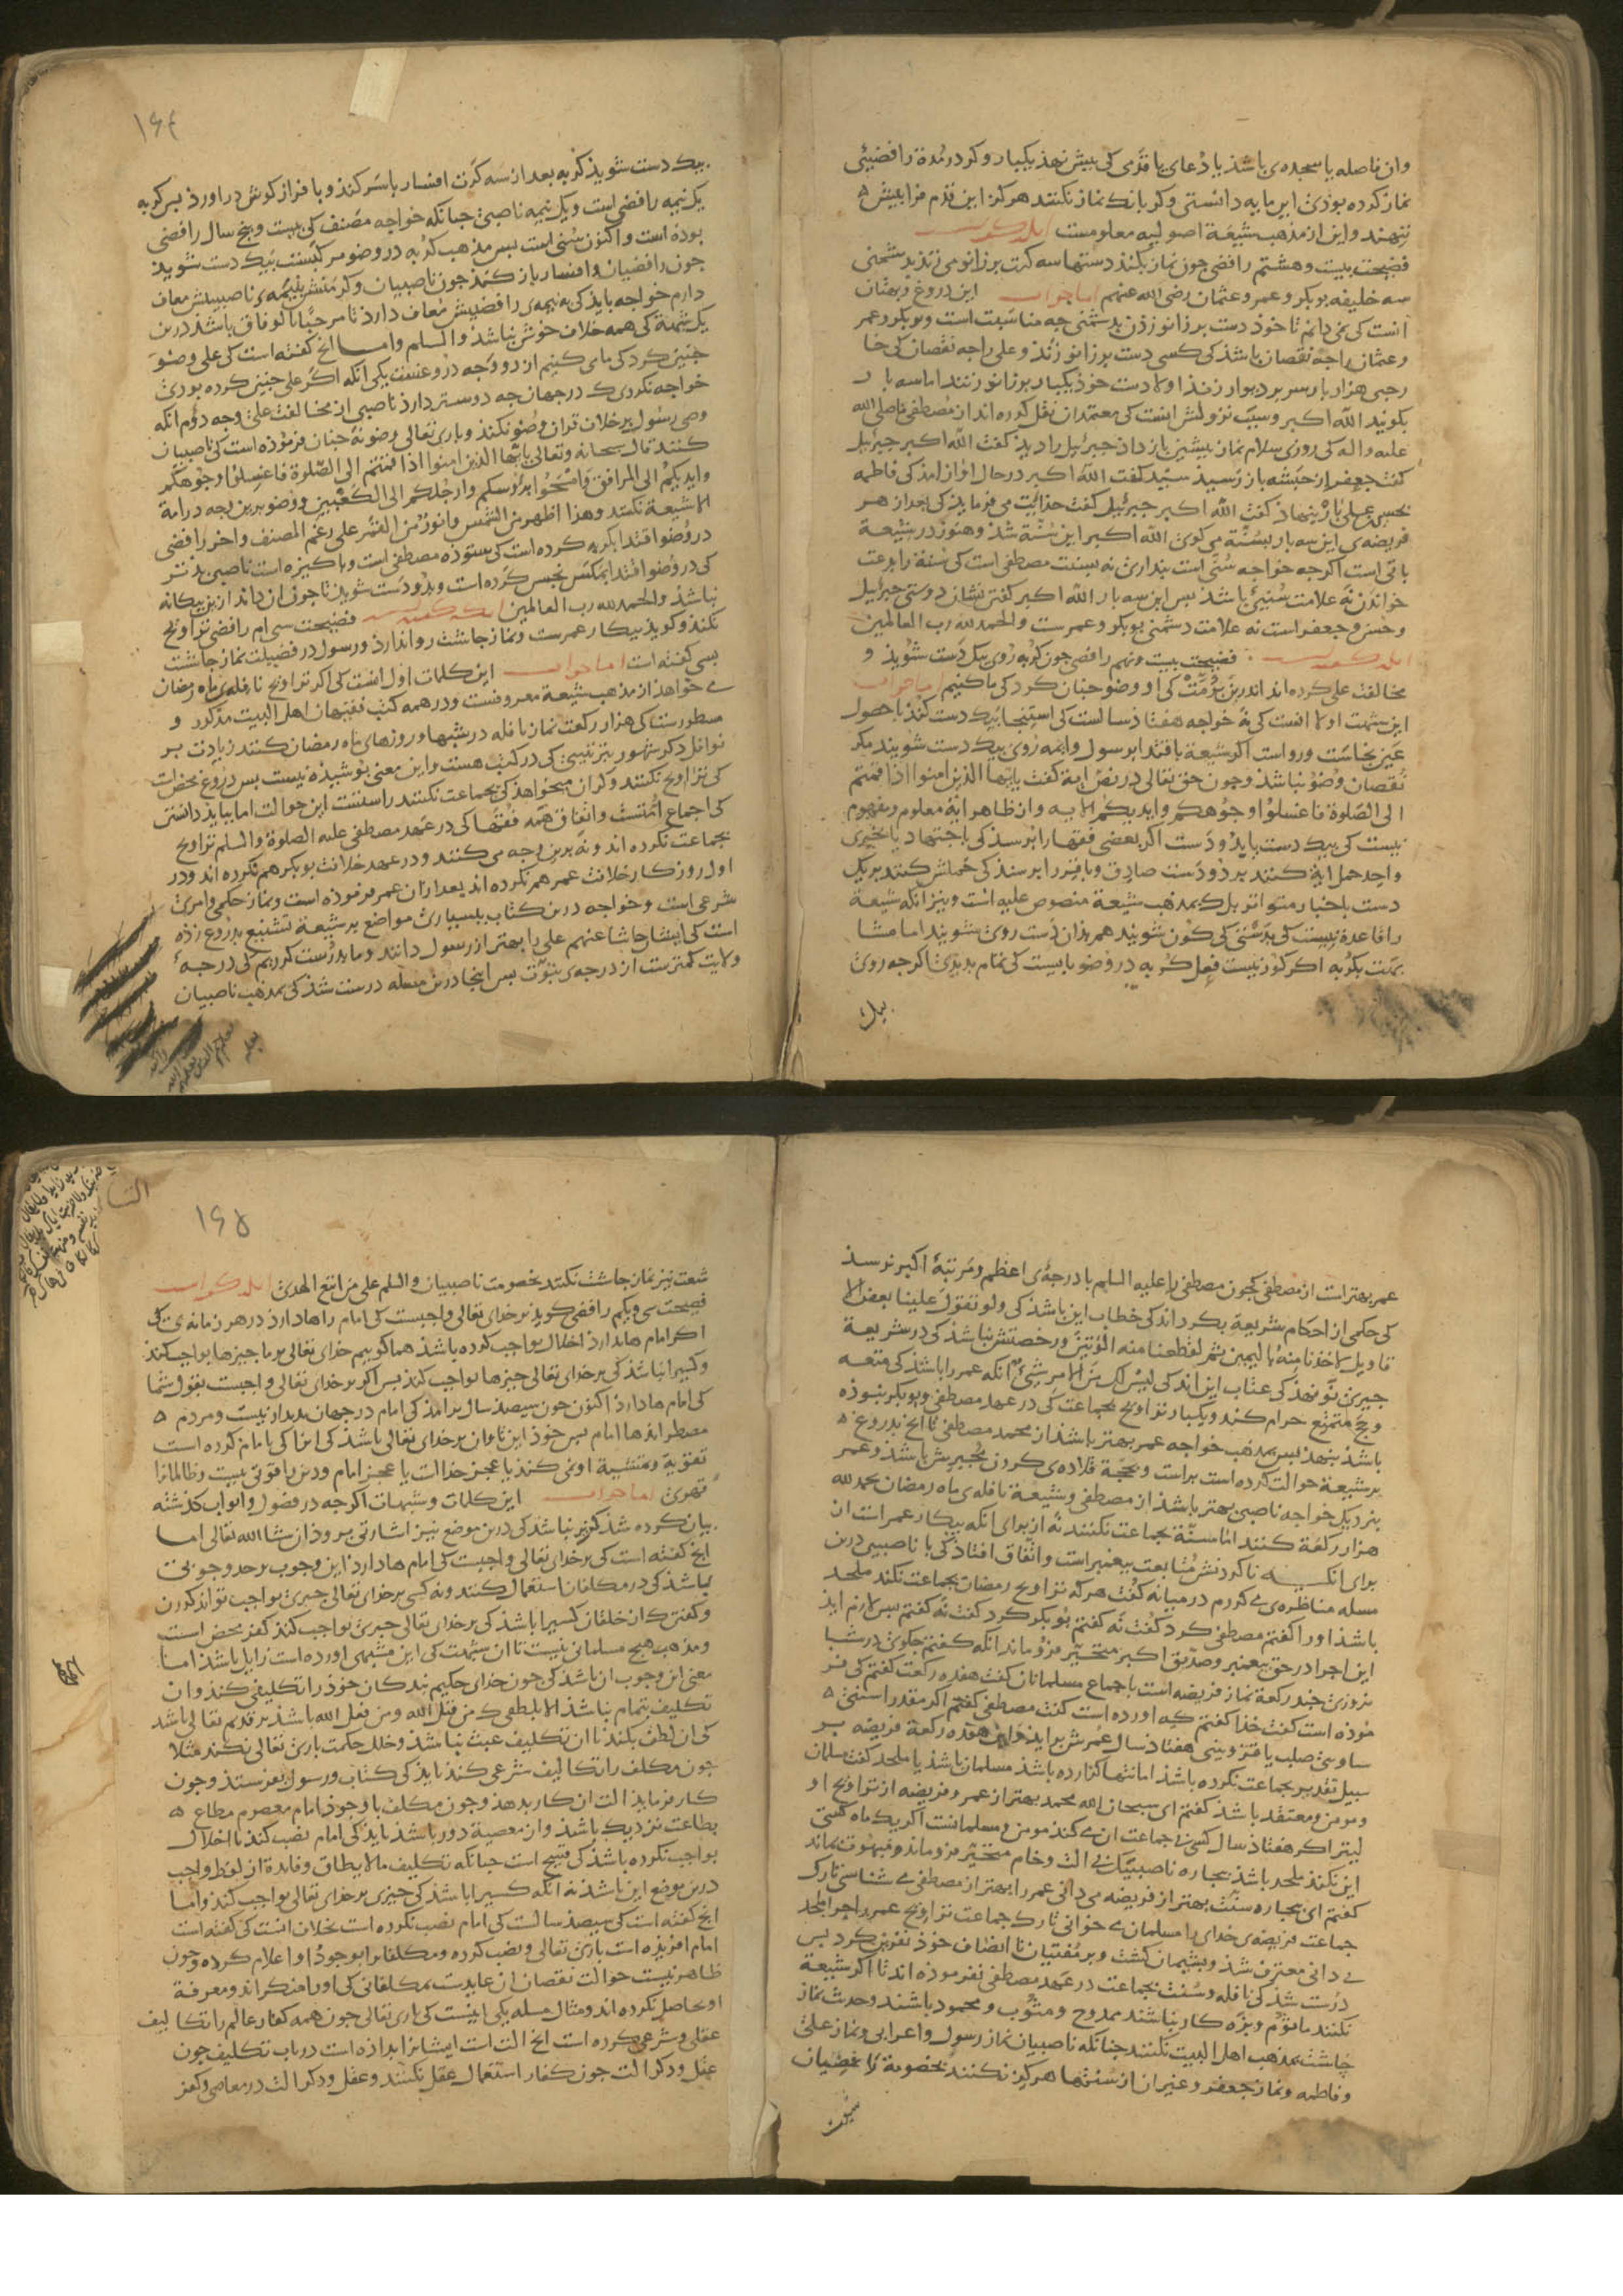 وان فاصله یا سجده‌ی باشد یا دعای یا قدمی کی بیش نهد یکبار و کر در مدة رافضیئی
نماز کرده بوذی این مایه دانستی و کر بانک نماز نکنند هر کز این قدم فرا بیش
ننهند و این از مذهب شیعة اصولیه معلومست انکه کفته است
فضیحت بیست و هشتم رافضی جون نماز بکند دستها سه کرت بر زانو می زند بدشمنی
سه خلیفه بوبکر و عمر و عثمان رضی الله عنهم اما جواب این دروغ و بهتان
انست کی نمی دانم تا خوذ دست بر زانو زدن بدشمنی جه مناسبت است و بوبکر و عمر
و عثمان را جه نقصان باشد کی کسی دست بر زانو زند و علی را جه نقصان کی خا
رجی هزار بار سر بر دیوار زند اولا دست خوذ یکبار بر زانو زنند اما سه بار
بکویند الله اکبر و سبب نزولش انست کی معتمدان نقل کرده اند از مصطفی صلی الله
علیه واله کی روزی سلام نماز بیشین باز داد جبرئیل را دید کفت الله اکبر جبرئیل
کفت جعفر از حبشه باز رسید سید کفت الله اکبر در حال اواز امد کی فاطمه
بحسن علی بار بنهاد کفت الله اکبر جبرئیل کفت خدایت می فرماید کی بعد از هر
فریضه‌ی این سه بار بسنة می کوی الله اکبر این سنة شد و هنوز در شیعة
باقی است اکرجه خواجه سنی است بنداری نه بسنت مصطفی است کی سنة را بدعت
خواندن نه علامت سنیئی باشد بس این سه بار الله اکبر کفتن نشان دوستی جبرئیل
و حسن و جعفر است نه علامت دشمنی بوبکر و عمرست والحمد لله رب العالمین
انکه کفته است فضیحت بیست و نهم رافضی جون کربه روی بیک دست شوید و
مخالفت علی کرده اند اندرین بر مت کی او وضو جنان کرد کی ما کنیم اما جواب
این شبهت اولا انست کی نه خواجه هفتاد سالست کی استنجا بیک دست کند با حصول
عین نجاست و رواست اکر شیعة باقتدا برسول و ایمه روی بیک دست شویند مکر
نقصان وضو نباشد و جون حق تعالی در نص ایة کفت یایها الذین امنوا اذا قمتم
الی الصلوة فاغسلوا وجوهکم وایدیکم الایه و از ظاهر ایة معلوم و مفهوم
نیست کی بیک دست باید و دست اکر بعضی فقها را برسد کی باجتهاد یا بخبری
واحد حمل ایة کنند بر دو دست صادق و باقر را برسد کی حملش کنند بر یک
دست باخبار متواتر بلک بمذهب شیعة منصوص علیه است و نیز انکه شیعة
را قاعده نیست کی بدستی کی کون شویند هم بذان دست روی شویند اما مشا
بهت بکربه اکر کوز نیست فعل کربه در وضو بایست کی تمام بدیذی اکرجه روی
بیک
۱۶۴
بیک دست شوید کربه بعد از سه کرت افسار با سر کند و با فراز کوش در اورد بس کربه
یک نیمه رافضی است و یک نیمه ناصبی جنانکه خواجه مصنف کی بیست و بنج سال رافضی
بوده است و اکنون سنی است بس مذهب کربه در وضو مرکبست بیک دست شوید
جون رافضیان و افسار باز کند جون ناصبیان و کر منش بنیمه‌ی ناصبیش معاف
دارم خواجه باید کی به نیمه‌ی رافضیش معاف دارد تا مرحبا بالوفاق باشد درین
یک شمت کی همه خلاف خوش نباشد والسلام واما انج کفته است کی علی وضو
جنین کرد کی ما می کنیم از دو وجه دروغست یکی انکه اکر علی جنین کرده بوذی
خواجه نکردی کی در جهان جه دوستر دارد ناصبی از مخالفت علی وجه دوم انکه
وصی رسول بر خلاف قران وضو نکند و باری تعالی وضو نه جنان فرموده است کی ناصبیان
کنند قال سبحانه وتعالی یایها الذین امنوا اذا قمتم الی الصلوة فاغسلوا وجوهکم
وایدیکم الی المرافق وامسحوا برؤسکم وارجلکم الی الکعبین و وضو برین وجه در امة
الا شیعة نکنند وهذا اظهر من الشمس وانور من القمر علی رغم المصنف واخر رافضی
در وضو اقتدا بکربه کرده است کی ستوده مصطفی است و باکیزه است ناصبی بدتر
کی در وضو اقتدا بمکس نجس کرده است و بدو دست شوید تا جون ان داند ازین بیکانه
نباشد والحمد لله رب العالمین انکه کفته است فضیحت سی ام رافضی تراویح
نکند و کوید بیکار عمرست و نماز جاشت روا ندارد و رسول در فضیلت نماز جاشت
بسی کفته است اما جواب این کلمات اول انست کی اکر تراویح نافله‌ی ماه رمضان
می خواهد از مذهب شیعة معروفست و در همه کتب فقیهان اهل البیت مذکور و
مسطورست کی هزار رکعت نماز نافله در شبها و روزهای ماه رمضان کنند زیادت بر
نوافل دکر شهور بترتیبی کی در کتب هست و این معنی بوشیده نیست بس دروغ محض است
کی تراویح نکنند و کر ان میخواهد کی بجماعت نکنند راستست این حوالت اما بباید دانستن
کی اجماع امتست و اتفاق همه فقها کی در عهد مصطفی علیه الصلوة والسلم تراویح
بجماعت نکرده اند و نه برین وجه می کنند و در عهد خلافت بوبکر هم نکرده اند و در
اول روزکار خلافت عمر هم نکرده اند بعد از ان عمر فرموده است و نماز حکمی و امری
شرعی است و خواجه درین کتاب ببسیاری مواضع بر شیعة تشنیع بدروغ زده
است کی ایشان حاشا عنهم علی را بهتر از رسول دانند و ما بدرست کردیم کی درجهٔ
ولایت کمترست از درجه‌ی نبوت بس اینجا درین مسله درست شد کی بمذهب ناصبیان
عمر بهتر است از مصطفی کی جون مصطفی را علیه السلم با درجه‌ی اعظم و مرتبهٔ اکبر نرسد
کی حکمی از احکام شریعة بکرداند کی خطاب این باشد کی ولو تقول علینا بعض الا
قاویل لاخذنا منه بالیمین ثم لقطعنا منه الوتین و رخصتش نباشد کی در شریعة
جیزی نو نهد کی عتاب این اند کی لیس لک من الامر شیء انکه عمر را باشد کی متعه
و حج متمتع حرام کند و یکبار تراویح بجماعت کی در عهد مصطفی و بوبکر نبوده
باشد بنهد بس بمذهب خواجه عمر بهتر باشد از محمد مصطفی تا انج بدروغ
بر شیعة حوالت کرده است براست و بحجة قلاده‌ی کردن مجبرش باشد و عمر
بنزدیک خواجه ناصبی بهتر باشد از مصطفی و شیعة نافله‌ی ماه رمضان بحمد لله
هزار رکعة کنند اما بسنة بجماعت نکنند نه از برای انکه بیکار عمر است ان
برای انکه ناکردنش متابعت بیغمبر است و اتفاق افتاد کی با ناصبیی درین
مسله مناظره‌ی می کردم در میانه کفت هر که تراویح رمضان بجماعت نکند ملحد
باشد او را کفتم مصطفی کرد کفت نه کفتم بوبکر کرد کفت نه کفتم بس لازم اید
این اجرا در حق بیغمبر و صدیق اکبر متحیر فرو ماند انکه کفتم جکویی در شبا
نروزی جند رکعة نماز فریضه است باجماع مسلمانان کفت هفده رکعت کفتم کی فر
موده است کفت خدا کفتم که اورده است کفت مصطفی کفتم اکر مقدر استی
ساوی صلب یا قزوینی هفتاد سال عمرش براید و این هفده رکعة فریضه بر
سبیل تقدیر بجماعت نکرده باشد اما تنها کزارده باشد مسلمان باشد یا ملحد کفت مسلمان
و مومن و معتقد باشد کفتم ای سبحان الله محمد بهتر از عمر و فریضه از تراویح او
لیتر اکر هفتاد سال کسی بی جماعت ان می کند مومن و مسلمانست اکر یک ماه کسی
این نکند ملحد باشد بیجاره ناصبیک بی الت و خام متحیر فرو ماند و مبهوت بماند
کفتم ای بیجاره سنت بهتر از فریضه می دانی عمر را بهتر از مصطفی می شناسی تارک
جماعت فریضه‌ی خدای را مسلمان می خوانی تارک جماعت تراویح عمر را جرا ملحد
می دانی معترف شد و بشیمان کشت و بر مفتیان نا انصاف خوذ نفرین کرد بس
درست شد کی نافله و سنت بجماعت در عهد مصطفی نفرموده اند تا اکر شیعة
نکنند ماثوم و بزه کار نباشند ممدوح و مثوب و محمود باشند و حدیث نماز
جاشت بمذهب اهل البیت نکنند جنانکه ناصبیان نماز رسول و اعرابی و نماز علی
و فاطمه و نماز جعفر و غیر ان از سنتها هر کز نکنند بخصومة رافضیان
شیعت
۱۶۵
شیعت نیز نماز جاشت نکنند بخصومت ناصبیان والسلم علی من اتبع الهدی انکه کفته است
فضیحت سی و یکم رافضی کوید بر خدای تعالی واجبست کی امام را ها دارد در هر زمانه‌ی کی
اکر امام ها ندارد اخلال بواجب کرده باشد هما کوییم خدای تعالی بر ما جیزها بواجب کند
و کس را نباشد کی بر خدای تعالی جیزها بواجب کند بس اکر بر خدای تعالی واجبست بقول شما
کی امام ها دارد اکنون جون سیصد سال بر امد کی امام در جهان بدیدار نیست و مردم
مضطر اند با امام بس خوذ این تاوان بر خدای تعالی باشد کی این کی با امام کرده است
تقویة و تمشیة او نمی کند یا عجز خدا است یا عجز امام و دین را قوتی نیست و ظالمانرا
قهری اما جواب این کلمات و شبهات اکرجه در فصول و ابواب کذشته
بیان کرده شد کزیر نباشد کی درین موضع نیز اشارتی برود ان شا الله تعالی اما
انج کفته است کی بر خدای تعالی واجبست کی امام ها دارد این وجوب بر حد وجوبی
نباشد کی در مکلفان استعمال کنند و نه کسی بر خدای تعالی جیزی بواجب تواند کردن
و کفتن کی از خلقان کسی را باشد کی بر خدای تعالی جیزی بواجب کند کفر محض است
و مذهب هیج مسلمان نیست تا ان شبهت کی این مشبهی اورده است زایل باشد اما
معنی این وجوب ان باشد کی جون خدای حکیم بندکان خوذ را تکلیفی کند و ان
تکلیف تمام نباشد الا بلطفی کی من قبل الله و من فعل الله باشد بر قدیم تعالی باشد
کی ان لطف بکند تا ان تکلیف عبث نباشد و خلل حکمت باری تعالی نکند مثلا
جون مکلف را تکالیف شرعی کند باید کی کتاب و رسول بفرستد و جون
کار فرماید الت ان کار بدهد و جون مکلف با وجود امام معصوم مطاع
بطاعت نزدیک باشد و از معصیة دور باشد باید کی امام نصب کند تا اخلال
بواجب نکرده باشد کی قبیح است جنانکه تکلیف مالایطاق و فایدة از لفظ واجب
درین موضع این باشد نه انکه کسی را باشد کی جیزی بر خدای تعالی بواجب کند و اما
انج کفته است کی سیصد سالست کی امام نصب نکرده است بخلاف انست کی کفته است
امام افریذه است باری تعالی و نصب کرده و مکلفانرا بوجود او اعلام کرده و جون
ظاهر نیست حوالت نقصان ان عایدست بمکلفانی کی او را منکر اند و معرفة
او حاصل نکرده اند و مثال مسله یکی اینست کی باری تعالی جون همه کفار عالم را تکالیف
عقلی و شرعی کرده است انج الت است ایشانرا بداده است در باب تکلیف جون
عقل و دکر الت جون کفار استعمال عقل نکنند و عقل و دکر الت در معاصی و کفر